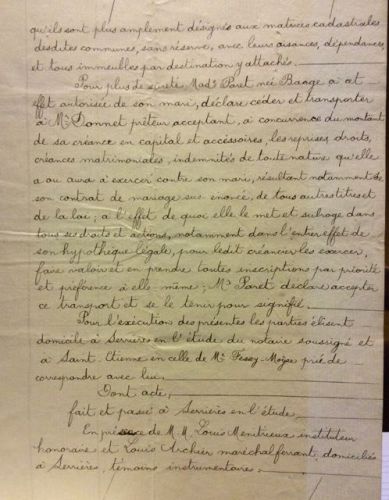 qu'ils sont plus amplement désignés aux matrices cadastrales
desdites communes, sans réserve, avec leurs aisances, dépendances
et tous immeubles par destination y attachés.
Pour plus de sureté Made Paret née Baage à cet
effet autorisée de son mari, déclare céder et transporter
à Mr Donnet prêteur acceptant, à concurrence du montant
de sa créance en capital et accessoires, les reprises, droits,
créances matrimoniales, indemnités de toute nature qu'elle
a ou aura à exercer contre son mari, résultant notamment de
son contrat de mariage sus-énoncé, de tous autres titres et
de la loi; à l'effet de quoi elle le met et subroge dans
tous ses droits et actions, notamment dans l'entier effet de
son hypothèque légale, pour ledit créancier les exercer,
faire valoir et en prendre toutes inscriptions par priorité
et préférence à elle-même; Mr Paret déclare accepter
ce transport et se le tenir pour signifié.
Pour l'exécution des présentes les parties élisent
domicile à Serrières en l'étude du notaire soussigné et
à Saint-Etienne en celle de Me Fessy-Moyse prié de
correspondre avec lui.
Dont acte,
fait et passé à Serrières en l'étude,
En présence de M.M. Louis Menitrieux instituteur
honoraire et Louis Archier maréchal ferrant, domiciliés
à Serrières, témoins instrumentaires.